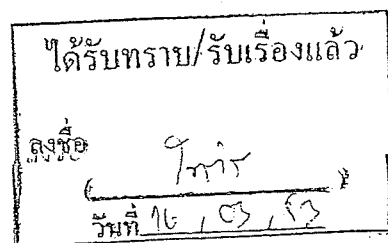 ได้รับทราบ/รับเรื่องแล้ว
ลงชื่อ
( )
วันที่ 16 / 03 / 53